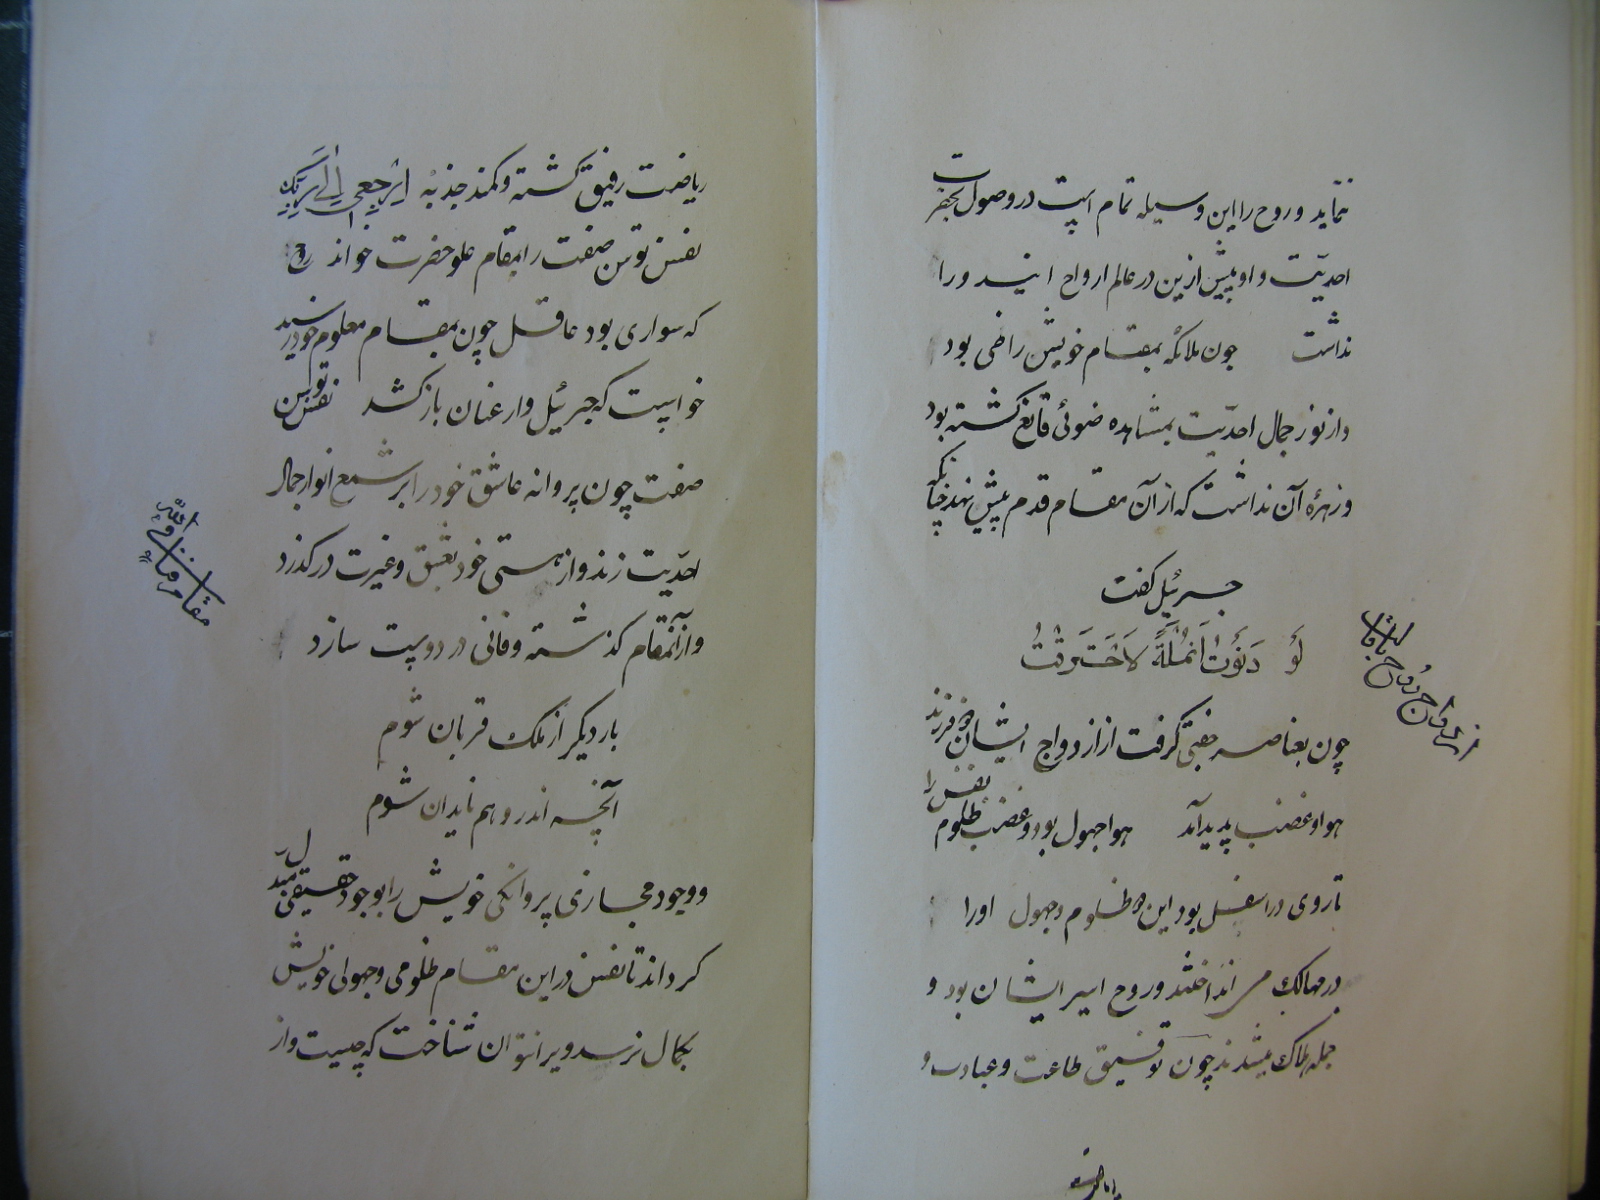 نماید و روح را این وسیله تمام است در وصول بحضرت
احدیّت و او پیش ازین در عالم ارواح این درد را
نداشت چون ملائکه بمقام خویش راضی بود
و از نور جمال احدیّت بمشاهده ضوئی قانع گشته بود
و زهرهٔ آن نداشت که از آن مقام قدم پیش نهد چنانکه
جبرئیل گفت
لَو دَنَوتُ اَنمُلَةً لاَحتَرَقتُ
چون بعناصر جفتی گرفت از ازدواج ایشان دو فرزند
هوا و غضب پدید آمد هوا جهول بود و غضب ظلوم نفس را
تا روی در اسفل بود این دو ظلوم و جهول او را
در مهالک می انداختند و روح اسیر ایشان بود و
جمله هلاک میشدند چون توفیق طاعت و عبادت و
ازدواج روح با
ریاضت رفیق گشته و کمند جذبهٔ اِرجِعی اِلی رَبِّکِ
نفس توسن صفت را بمقام علو حضرت خواند روح
که سواری بود عاقل چون بمقام معلوم خود رسید
خواست که جبرئیل وار عنان بازکشد نفس توسن
صفت چون پروانه عاشق خود را بر شمع انوار جمال
احدیّت زند و از هستی خود بعشق و غیرت درگذرد
و از آنمقام گذشته و فانی در دوست سازد
بار دیگر از ملک قربان شوم
آنچه اندر وهم ناید آن شوم
و وجود مجازی پروانگی خویش را بوجود حقیقی مبدّل
گرداند تا نفس در این مقام ظلومی و جهولی خویش
بکمال نرسد ویرا نتوان شناخت که چیست و از
مقام فنا فی الله